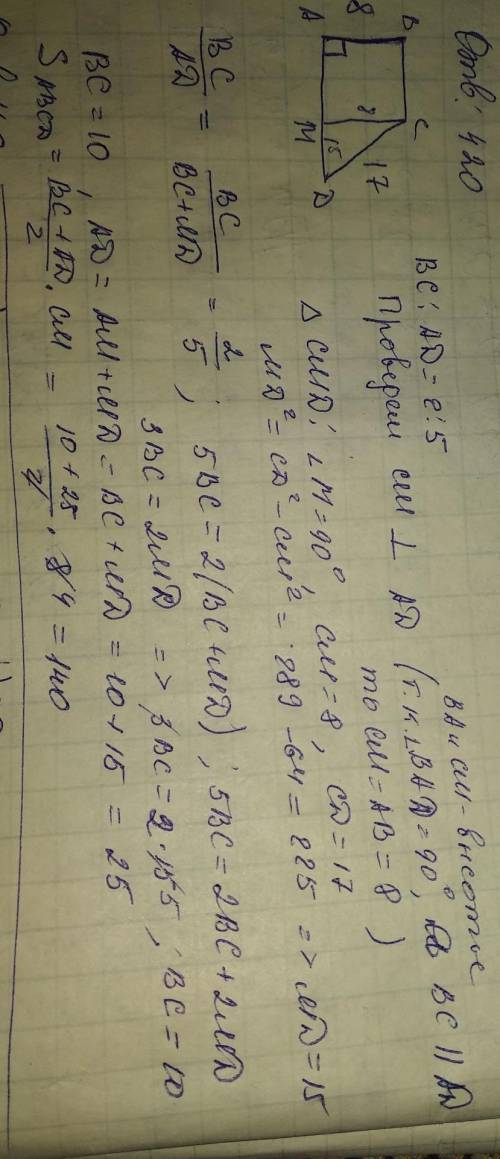 Отв: 420
B
C
8
8
17
15
A
M
D
BC : AD = 2 : 5
BA и CM - высоты
Проведем CM ⊥ AD (т.к ∠BAD = 90°, BC || AD
то CM = AB = 8 )
△ CMD: ∠M = 90°, CM = 8, CD = 17
MD² = CD² - CM² = 289 - 64 = 225 => MD = 15
BC/AD = BC/BC+MD = 2/5 ; 5BC = 2(BC+MD) ; 5BC = 2BC + 2MD
3BC = 2MD => 3BC = 2·15 5 ; BC = 10
BC = 10 , AD = AM + MD = BC + MD = 10 + 15 = 25
S ABCD = BC + AD/2 · CM = 10 + 25/2 · 8 4 = 140